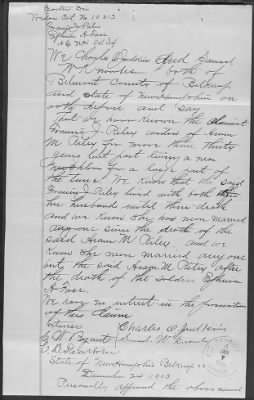 Widows Ctf No 10313
We Charles O Judkins and Samuel
W Knowles both of
Belmont County of Belknap
and state of New Hampshire on
oath depose and say
that we have known the claimant
Fannie J Riley widow of Hiram
M Riley for more than thirty
years last past living a near
neighbor for a large part of
the time. We know that the said
Fannie J Riley lived with both
her husband untill their death
and we know she has never married
anyone since the death of the
said Hiram M Riley. and we
know she never married any one
only the said Hiram M Riley after
the death of the soldier Ephraim
A
We have no interest in the prosecution
of this claim
Charles O Judkins
Samuel W. Knowles
State of New Hampshire Belknap ss
1903
Personally affirmed the above named